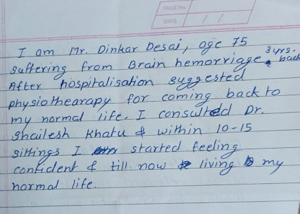 I am Mr. Dinkar Desai, age 75
suffering from Brain hemorriage 3 yrs. back
After hospitalisation suggested
physiothearapy for coming back to
my normal life. I consulted Dr.
Shailesh Khatu & within 10-15
sittings I started feeling
confident & till now living my
normal life.